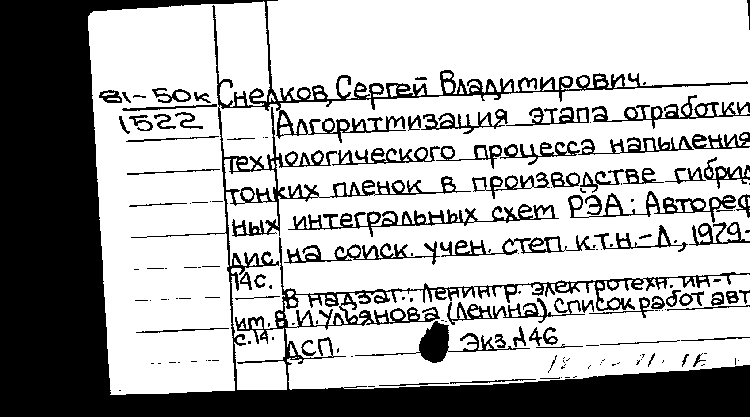 81-50к Снедков, Сергей Владимирович.
1522 Алгоритмизация этапа отработки
технологического процесса напыления
тонких пленок в производстве гибрид
ных интегральных схем РЭА: Автореф
дис. на соиск. учен. степ. к.т.н.-Л., 1979.-
14с.
В надзаг.: Ленингр. электротехн. ин-т
им. В.И.Ульянова (Ленина). Список работ авт
с.14.
ДСП. Экз.№46.